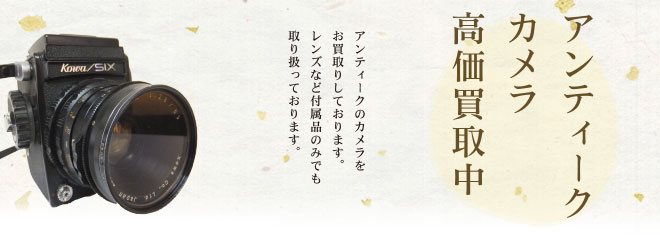 アンティーク
カメラ
高価買取中
アンティークのカメラを
お買取りしております。
レンズなど付属品のみでも
取り扱っております。
Kowa/SIX